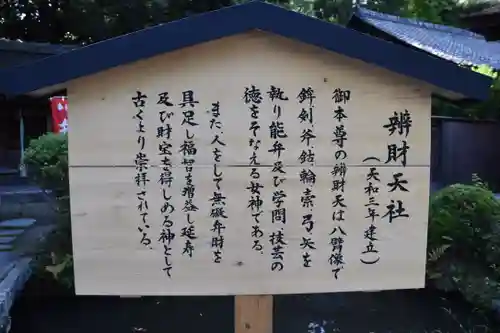 辨財天社
(天和三年建立)
御本尊の辨財天は八臂像で
鉾剣斧鈷輪索弓矢を
執り能弁及び学問、技芸の
徳をそなえる女神である。
また、人をして無礙弁財を
具足し福智を増益し延寿
及び財宝を得しめる神として
古くより崇拝されている。